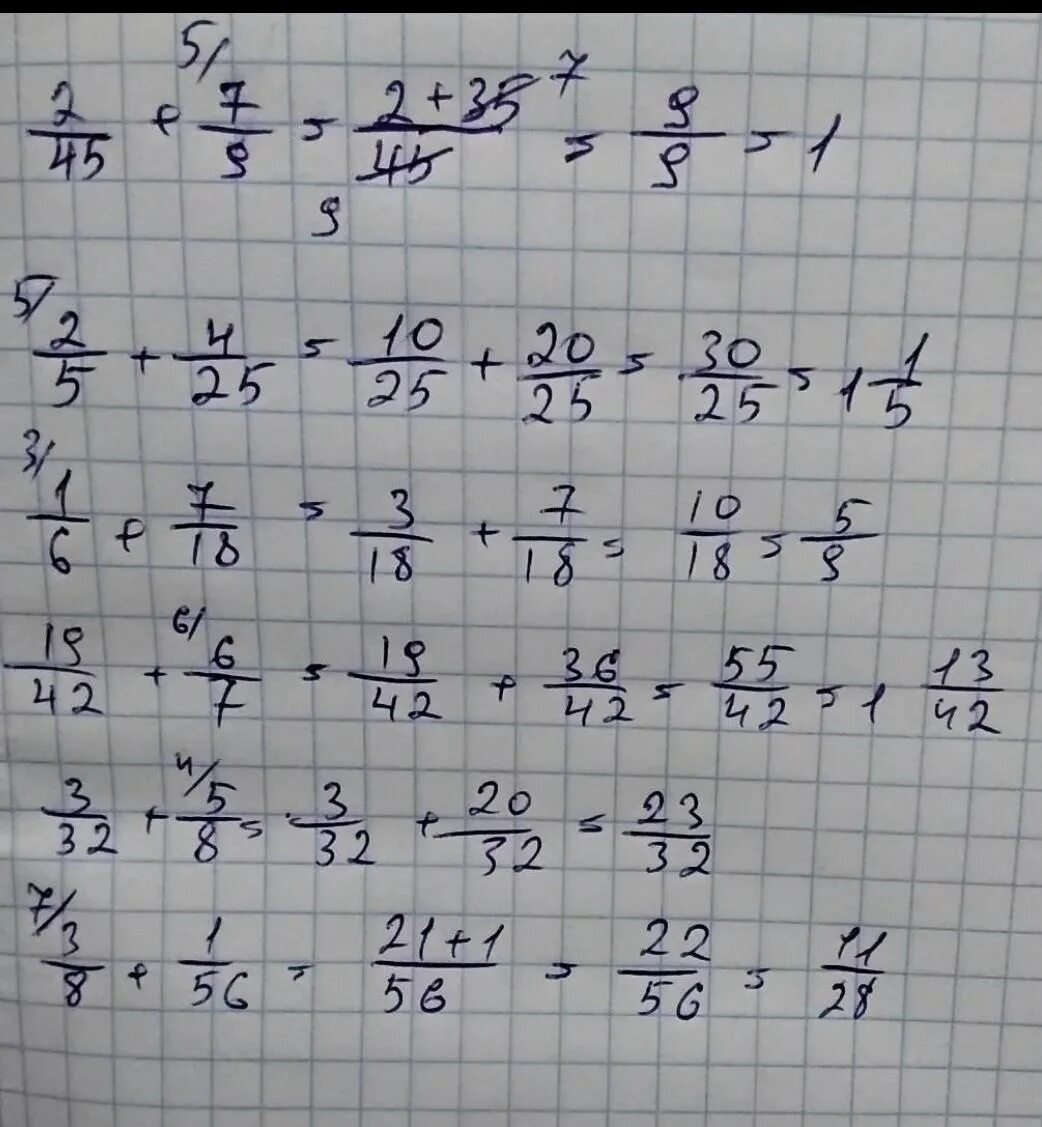 5/
2/45 + 7/9 = 2+35/45 7 9 = 9/9 = 1
5/ 2/5 + 4/25 = 10/25 + 20/25 = 30/25 = 1 1/5
3/ 1/6 + 7/18 = 3/18 + 7/18 = 10/18 = 5/9
19/42 + 6/ 6/7 = 19/42 + 36/42 = 55/42 = 1 13/42
3/32 + 4/ 5/8 = 3/32 + 20/32 = 23/32
7/ 3/8 + 1/56 = 21+1/56 = 22/56 = 11/28